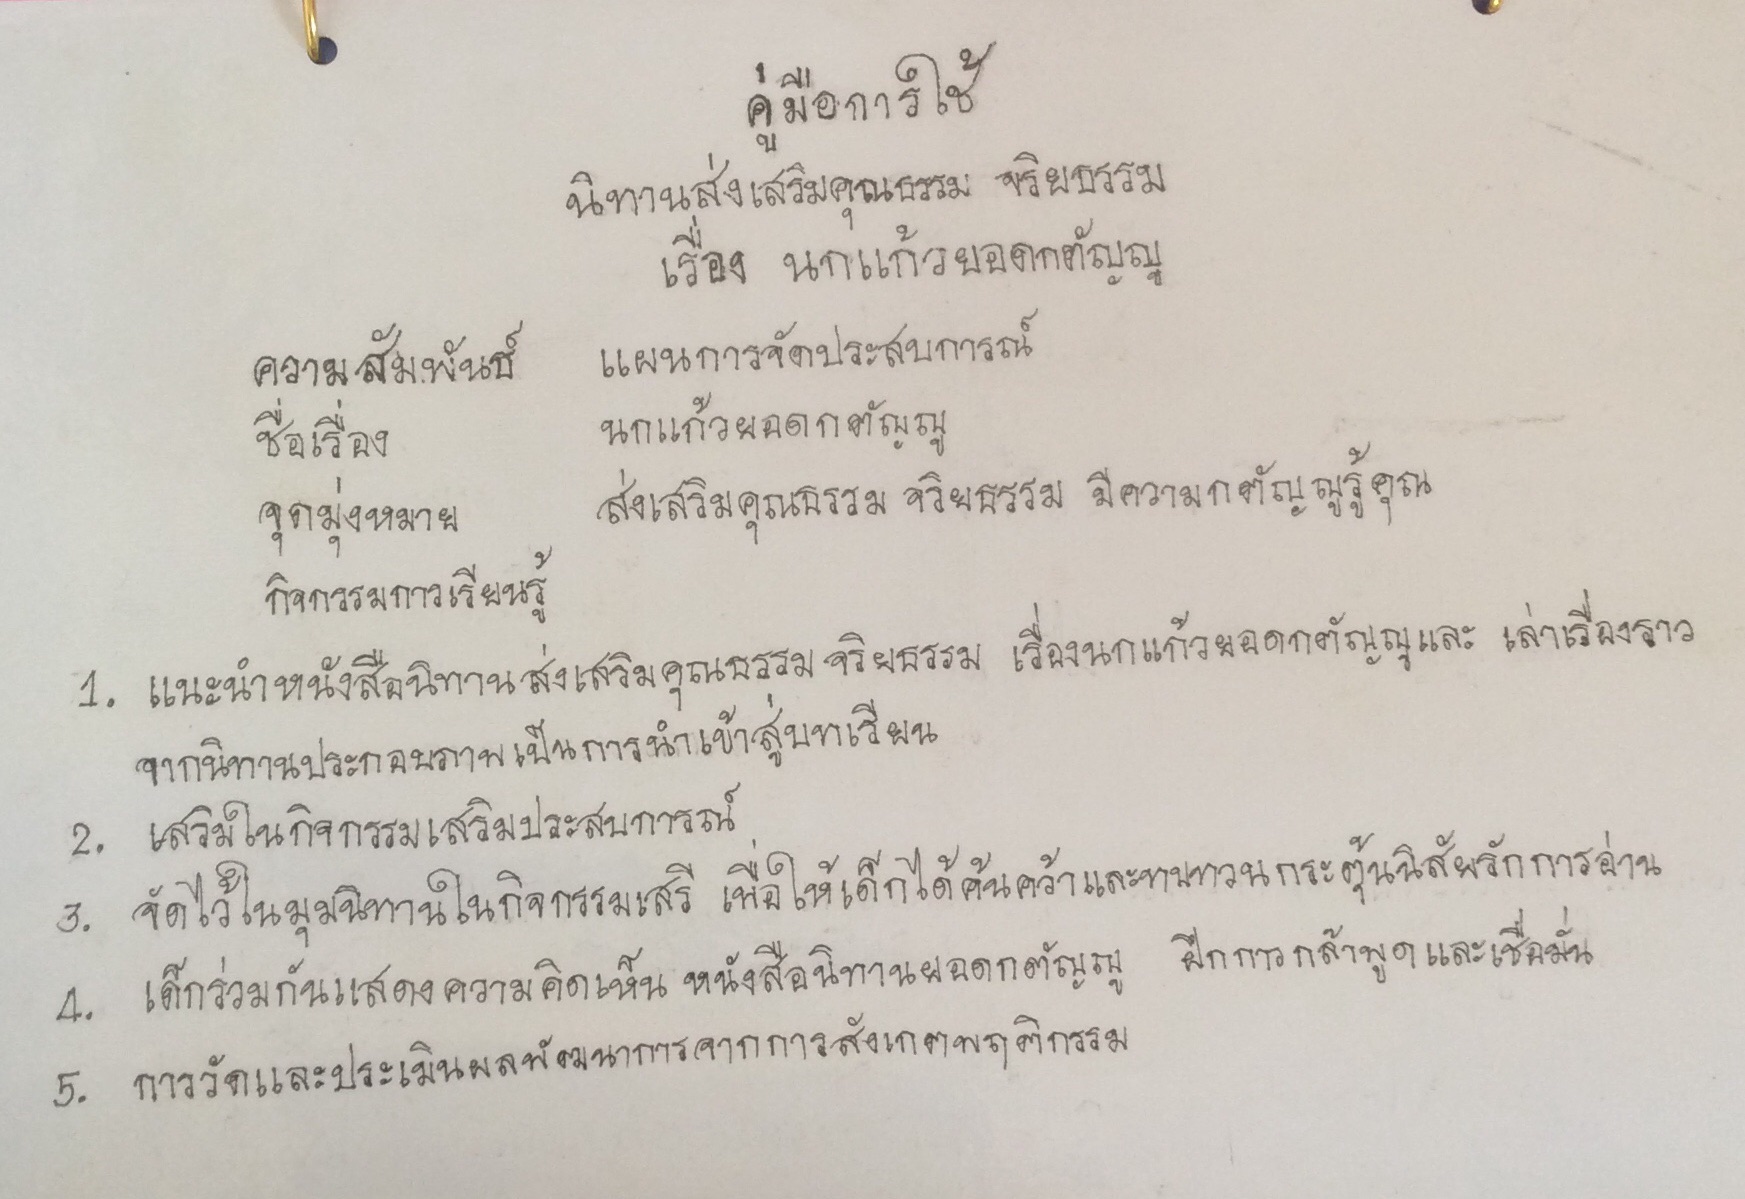 คู่มือการใช้
นิทานส่งเสริมคุณธรรม จริยธรรม
เรื่อง นกแก้วยอดกตัญญู
ความสัมพันธ์ แผนการจัดประสบการณ์
ชื่อเรื่อง นกแก้วยอดกตัญญู
จุดมุ่งหมาย ส่งเสริมคุณธรรม จริยธรรม มีความกตัญญูรู้คุณ
กิจกรรมการเรียนรู้
1. แนะนำหนังสือนิทานส่งเสริมคุณธรรม จริยธรรม เรื่องนกแก้วยอดกตัญญูและ เล่าเรื่องราว
จากนิทานประกอบภาพเป็นการนำเข้าสู่บทเรียน
2. เสริมในกิจกรรมเสริมประสบการณ์
3. จัดไว้ในมุมนิทานในกิจกรรมเสรี เพื่อให้เด็กได้ค้นคว้าและทบทวนกระตุ้นนิสัยรักการอ่าน
4. เด็กร่วมกันแสดงความคิดเห็น หนังสือนิทานยอดกตัญญู ฝึกการกล้าพูดและเชื่อมั่น
5. การวัดและประเมินผลพัฒนาการจากการสังเกตพฤติกรรม